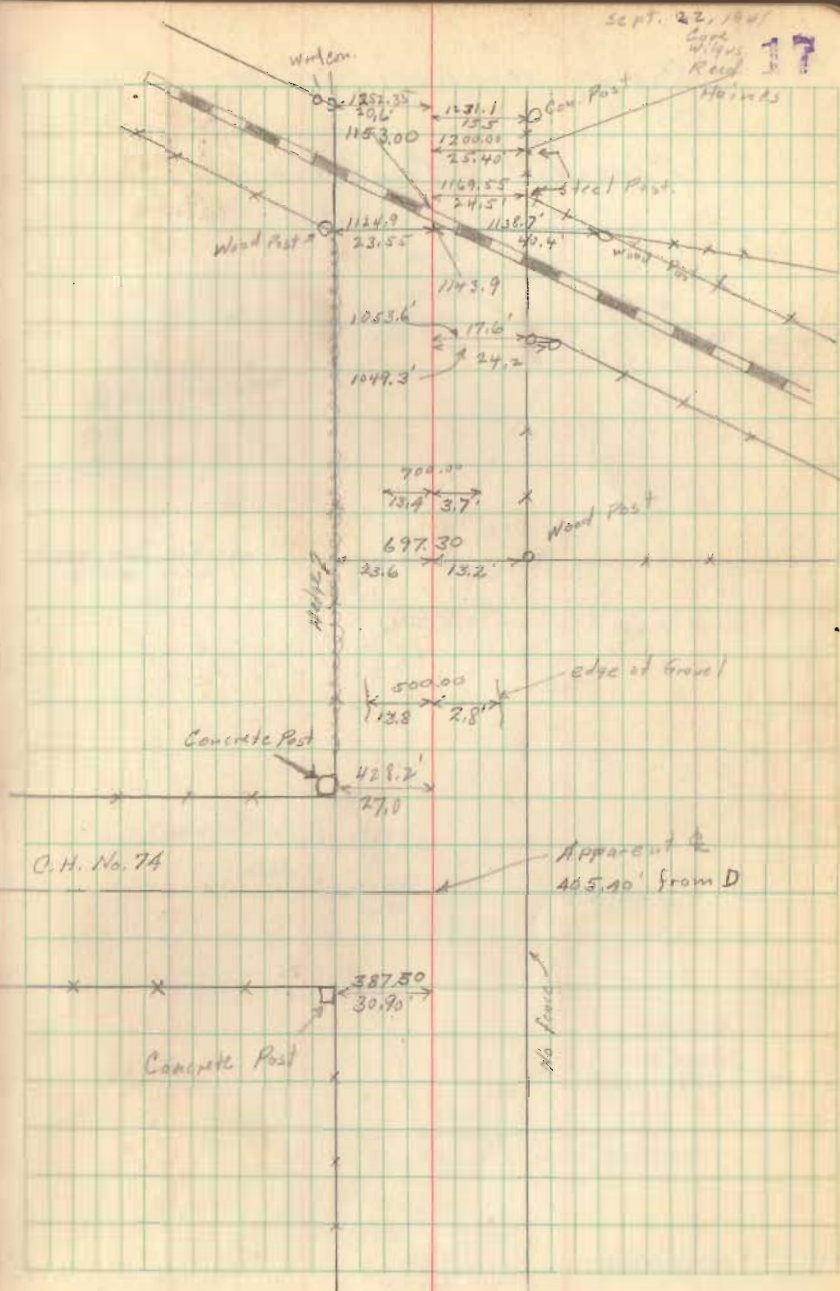 Sept. 22, 1941
17
Reed
Haines
1252.35
20.6'
1231.1
15.5
Con. Post
1153.00
1200.00
25.40'
1169.55
24.5'
Steel Post.
Wood Post
1124.9
23.55
1138.7'
40.4'
Wood Post
1143.9
1053.6'
17.6'
24.2
1049.3'
700.00
13.4'
3.7'
Wood Post
697.30
23.6
13.2'
Hedge
500.00
13.8
2.8'
edge of Gravel
Concrete Post
428.2'
27.0
C.H. No. 74
Apparent ℄
405.40' from D
387.50
30.90'
No fence
Concrete Post